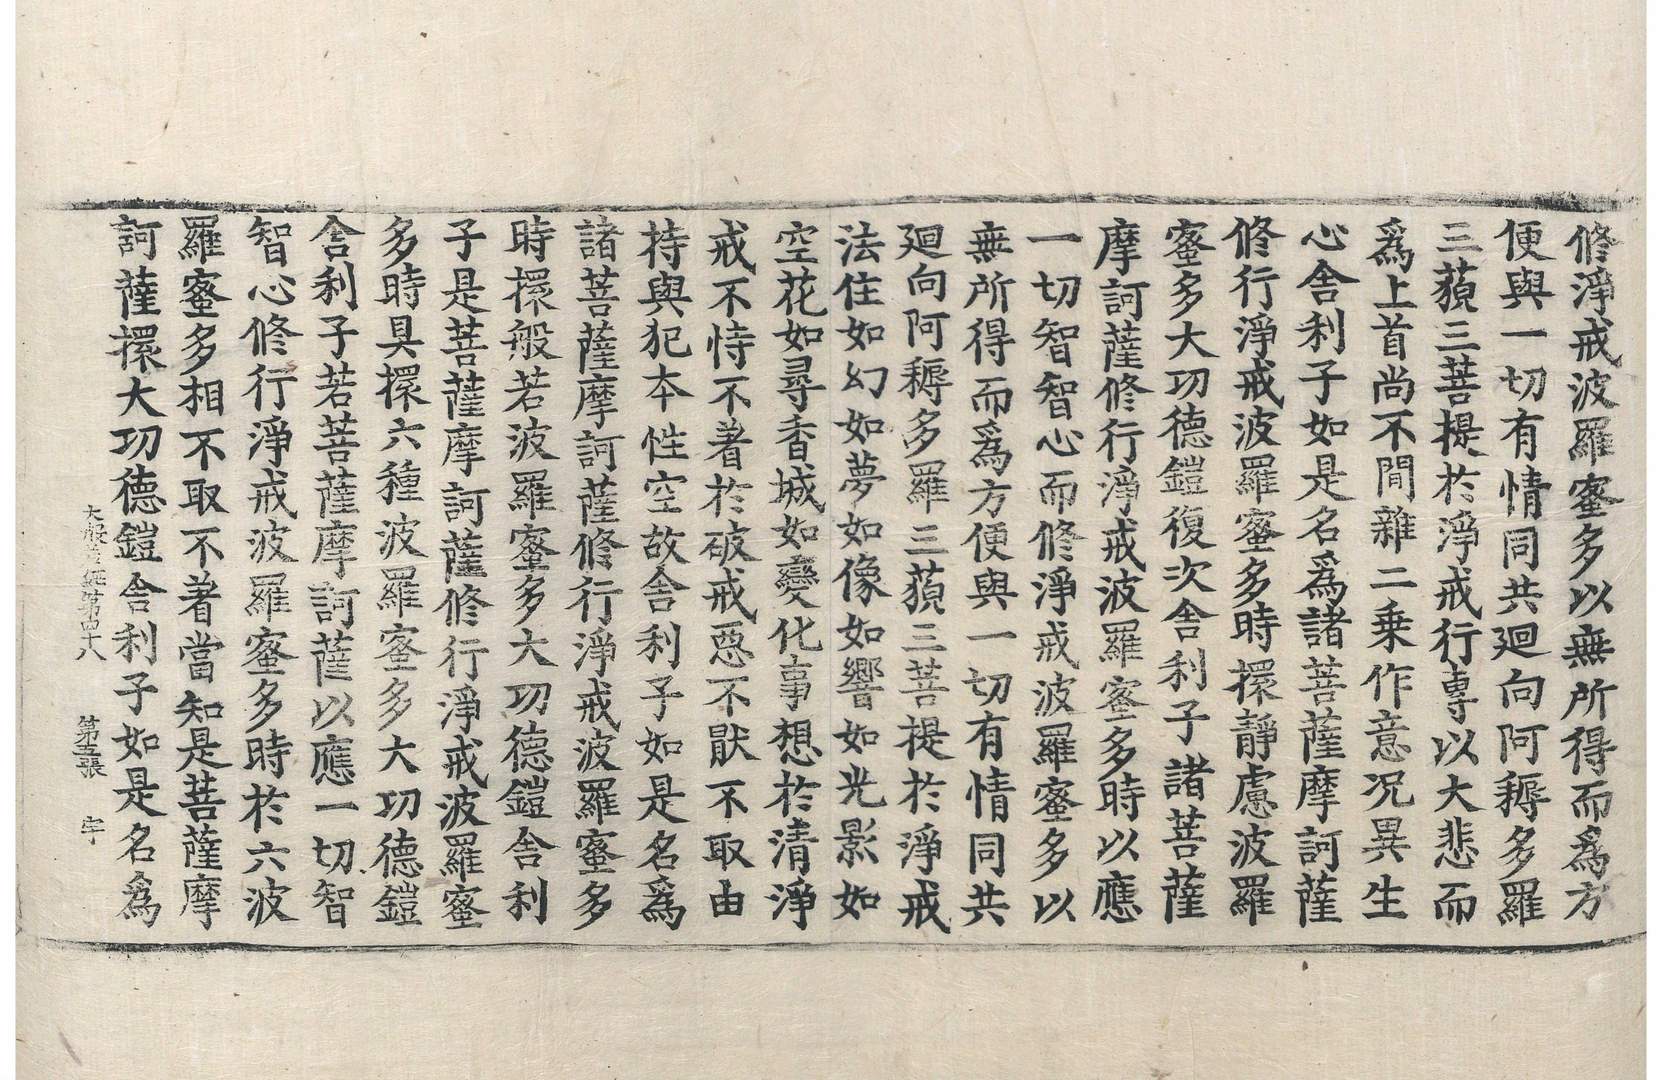 修淨戒波羅蜜多以無所得而爲方
便與一切有情同共迴向阿耨多羅
三藐三菩提於淨戒行專以大悲而
爲上首尚不間雜二乗作意况異生
心舎利子如是名爲諸菩薩摩訶薩
修行淨戒波羅蜜多時擐靜慮波羅
蜜多大功德鎧復次舎利子諸菩薩
摩訶薩修行淨戒波羅蜜多時以應
一切智智心而修淨戒波羅蜜多以
無所得而爲方便與一切有情同共
迴向阿耨多羅三藐三菩提於淨戒
法住如幻如夢如像如響如光影如
空花如尋香城如變化事想於清淨
戒不恃不著於破戒惡不猒不取由
持與犯本性空故舎利子如是名爲
諸菩薩摩訶薩修行淨戒波羅蜜多
時擐般若波羅蜜多大功德鎧舎利
子是菩薩摩訶薩修行淨戒波羅蜜
多時具擐六種波羅蜜多大功德鎧
舎利子若菩薩摩訶薩以應一切智
智心修行淨戒波羅蜜多時於六波
羅蜜多相不取不著當知是菩薩摩
訶薩擐大功德鎧舎利子如是名爲
大般若經第四十八 第五張 宇